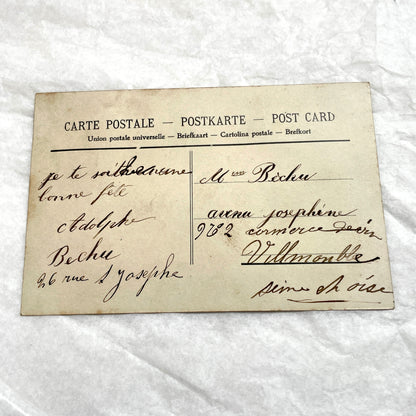 CARTE POSTALE — POSTKARTE — POST CARD
Union postale universelle — Briefkaart — Cartolina postale — Brefkort
je te
bonne fête
Adolphe
Bechu
26 rue S Josephe
Béchu
avenu josephéne
commerce
Villmomble